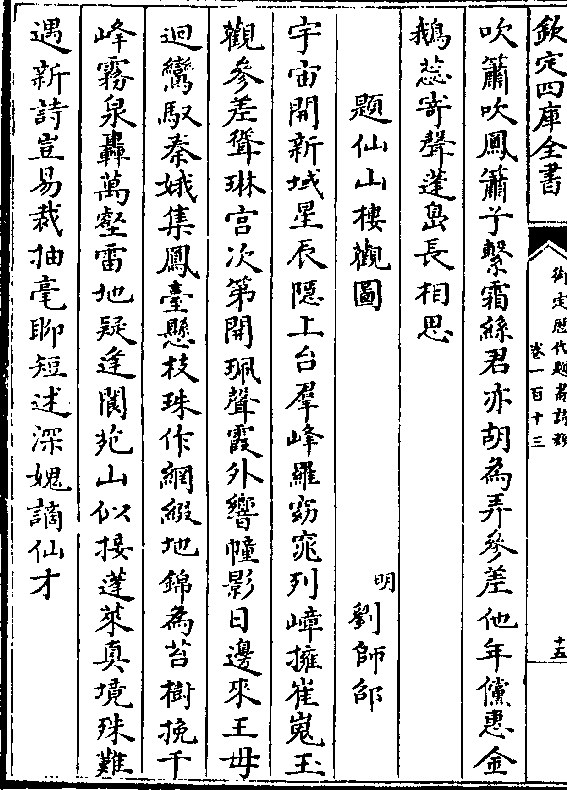 欽定四庫全書
御定歷代題畫詩類
卷一百十三
十五
吹簫吹鳳簫予繫霜絲君亦胡為弄參差他年儻惠金
鵝蕊寄聲蓬島長相思
題仙山樓觀圖
明劉師邵
宇宙開新域星辰隱上台羣峰羅窈窕列嶂擁崔嵬玉
觀參差聳琳宮次第開珮聲霞外響幢影日邊來王母
迴鸞馭秦娥集鳳臺懸枝珠作網綴地錦為苔樹挽千
峰霧泉轟萬壑雷地疑逢閬苑山似接蓬萊真境殊難
遇新詩豈易裁抽毫聊短述深媿謫仙才